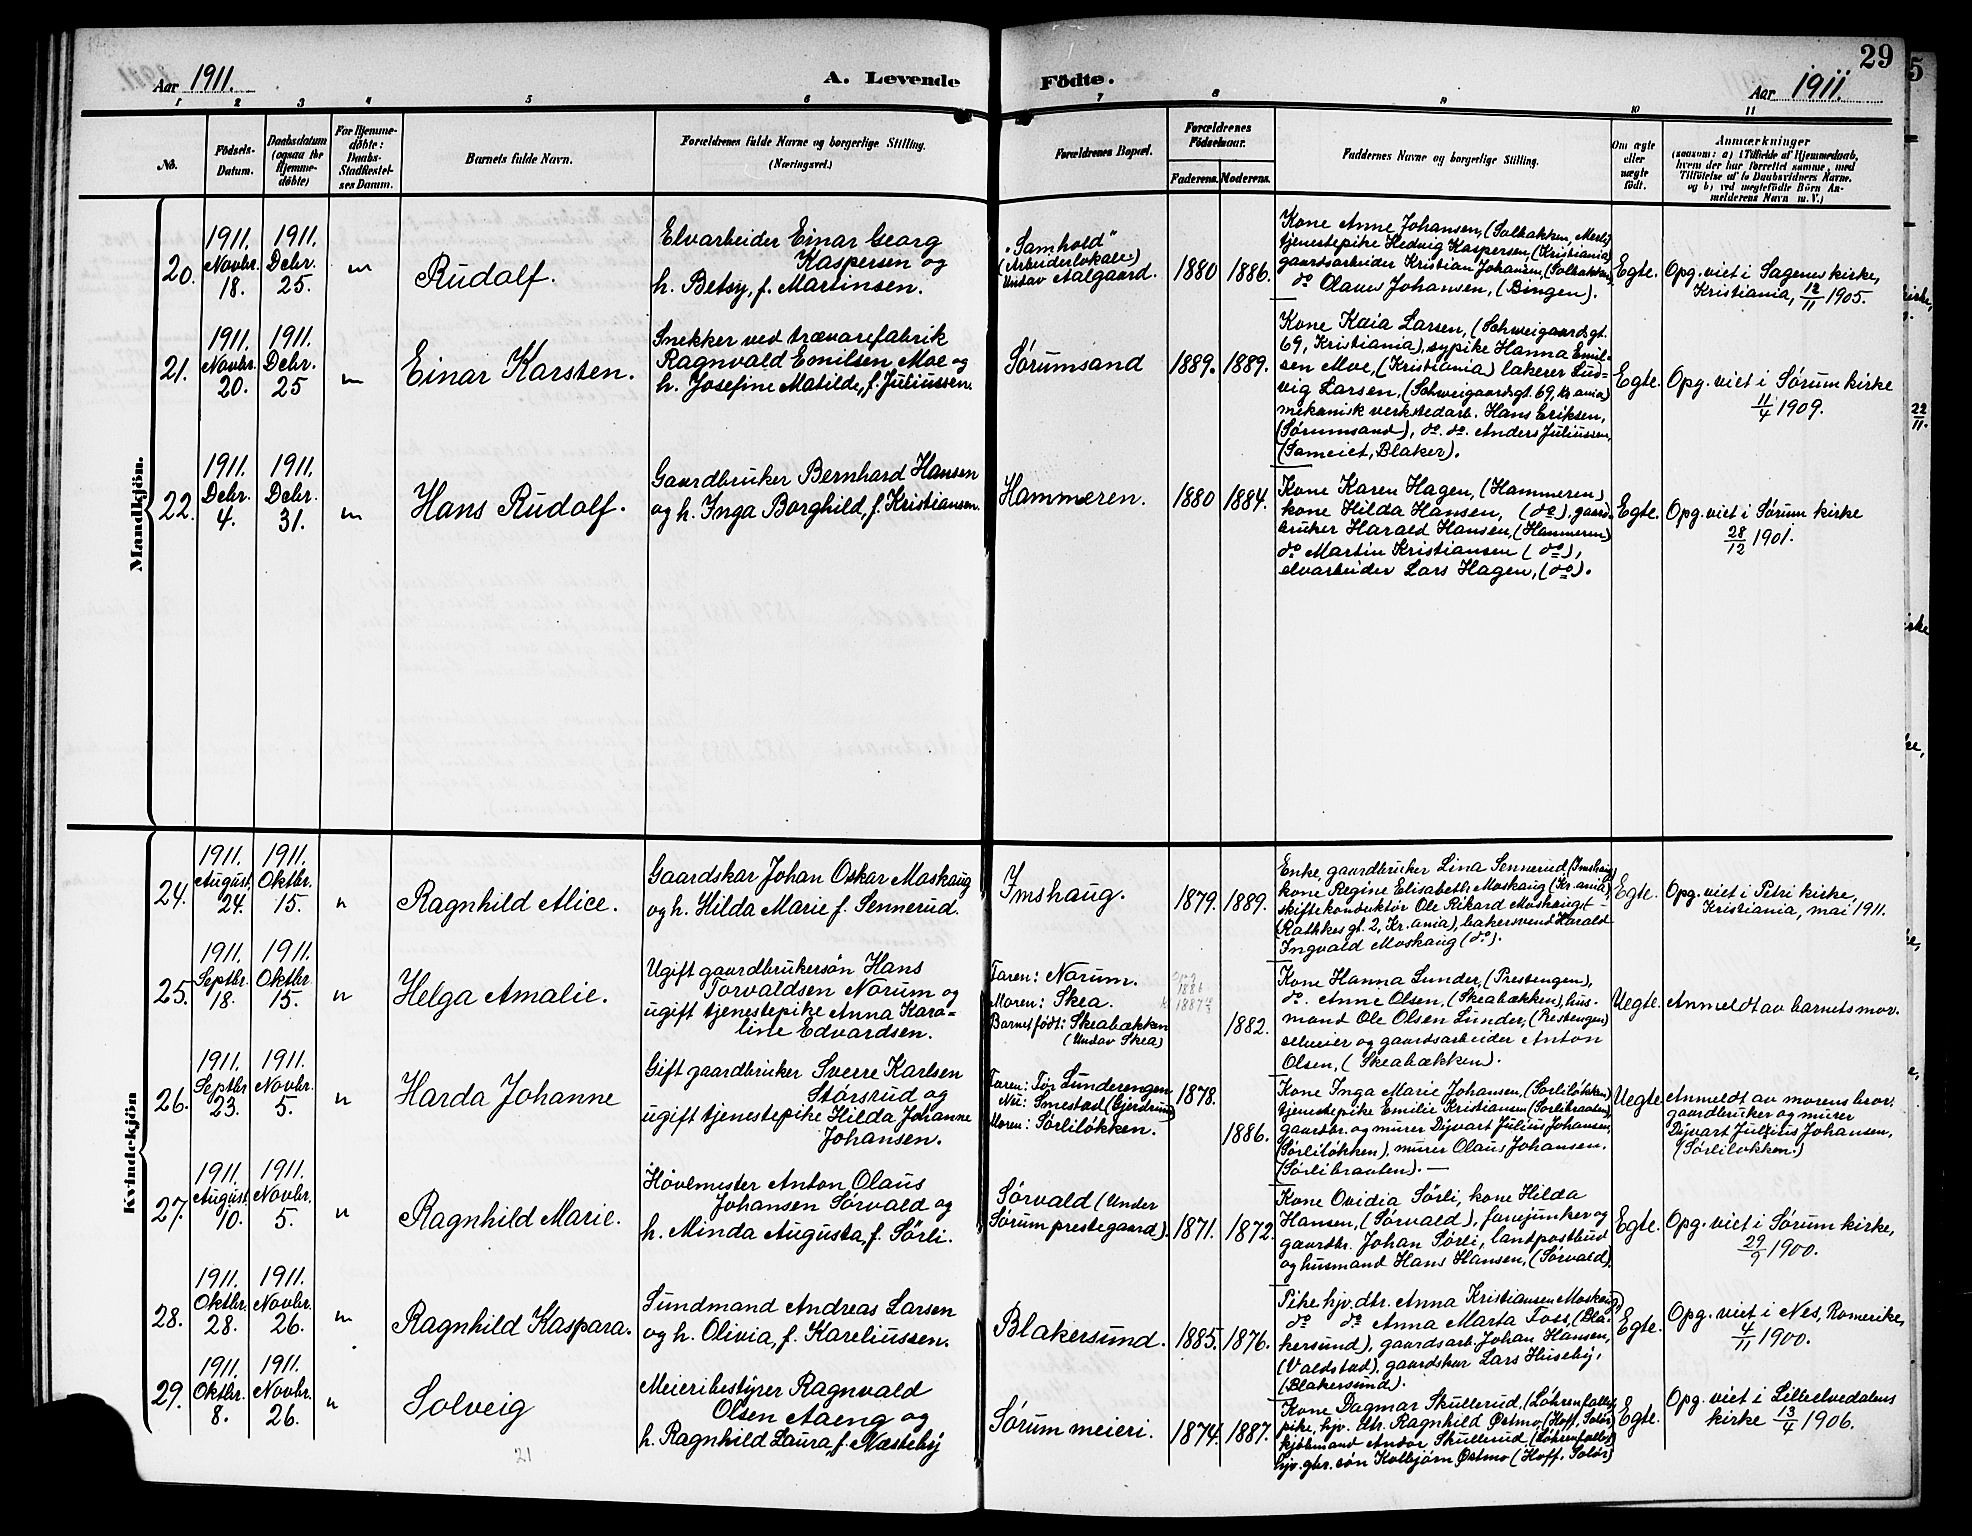 29
Aar 1911.
A. Levende
Födte.
Aar 1911.
1 2 3 4 5 6 7 8 9 10 11
No.
Födsels-
Datum.
Daabsdatum
(ogsaa for
Hjemme-
døbte)
For Hjemme-
døbte:
Daabs-
Stadfæstel-
ses Datum.
Barnets fulde Navn.
Forældrenes fulde Navne og borgerlige Stilling.
(Næringsvei.)
Forældrenes Bopæl.
Forældrenes
Födselsaar.
Faderens. Moderens.
Faddernes Navne og borgerlige Stilling.
Om ægte
eller
uægte
født.
Anmærkninger
(saasom: a) i Tilfælde af Hjemmedaab,
hvem der har forrettet samme, med
Tilföielse af to Daabsvidners Navne,
og b) ved uegtefödte Börn An-
melderens Navn m. V.)
Mandkjön.
20.
1911.
Novbr.
18.
1911.
Debr.
25.
"
Rudolf.
Elvarbeider Einar Georg
Kaspersen og
h. Betsy, f. Martinsen.
"Samhold"
(Arbeiderlokale)
Undav Aalgaard.
1880
1886.
Kone Anne Johansen, (Solbakken, Merli)
tjenestepike Hedvig Kaspersen, (Kristiania)
gaardsarbeider Kristian Johansen, (Solbakken)
do Olaus Johansen, (Bingen).
Egte.
Opg. viet i Sagenes kirke,
Kristiania, 12/11 1905.
21.
1911.
Novbr.
20.
1911.
Debr.
25
"
Einar Karsten.
Snekker ved trævarefabrik
Ragnvald Emilsen Moe og
h. Josefine Matilde, f. Juliussen.
Sørumsand
1889.
1889.
Kone Kaia Larsen, (Schweigaardsgt.
69, Kristiania), sypike Hanna Emil-
sen Moe, (Kristiania) lakerer Lud-
vig Larsen, (Schweigaardsgt. 69, Kr.ania)
mekanisk verkstedarb. Hans Eriksen,
(Sørumsand), do. do. Anders Juliussen,
(Sameiet, Blaker).
Egte.
Opg. viet i Sørum kirke
11/4 1909.
22.
1911.
Debr.
4.
1911.
Debr.
31.
"
Hans Rudolf.
Gaardbruker Bernhard Hansen
og h. Inga Borghild, f. Kristiansen.
Hammeren.
1880
1884.
Kone Karen Hagen, (Hammeren)
kone Hilda Hansen, (do), gaard-
bruker Harald Hansen, (Hammeren)
do Martin Kristiansen (do),
elvarbeider Lars Hagen, (do).
Egte.
Opg. viet i Sørum kirke
28/12 1901.
Kvindekjön
24.
1911.
August
24.
1911.
Oktbr.
15.
"
Ragnhild Alice.
Gaardskar Johan Oskar Moskaug
og h. Hilda Marie f. Sennerud.
Imshaug.
1879.
1889.
Enke, gaardbruker Lina Sennerud (Imshaug)
kone Regine Elisabeth Moskaug (Kr.ania)
skiftekonduktør Ole Rikard Moskaug
(Rathkesgt. 2, Kr.ania), bakersvend Harald
Ingvald Moskaug (do).
Egte.
Opg. viet i Petri kirke,
Kristiania, mai 1911.
25.
1911.
Septbr.
18.
1911.
Oktbr.
15.
"
Helga Amalie.
Ugift gaardbrukersøn Hans
Torvaldsen Norum og
ugift tjenestepike Anna Karo-
line Edvardsen.
Faren: Norum.
Moren: Skea.
Barnet født: Skeabækken
(Undav Skea)
1882.
Kone Hanna Sunder, (Prestengen),
do. Anne Olsen, (Skeabækken), hus-
mand Ole Olsen Sunder, (Prestengen)
selveier og gaardsarbeider Anton
Olsen, (Skeabækken).
Uegte.
Anmeldt av barnets mor.
26.
1911.
Septbr
23.
1911.
Novbr.
5.
"
Harda Johanne
Gift gaardbruker Sverre Karlsen
Størsrud og
ugift tjenestepike Hilda Johanne
Johansen.
Faren: Før Sunderengen
Nu: Smestad (Gjerdrum)
Moren: Sørliløkken.
1878.
1886.
Kone Inga Marie Johansen, (Sorliløkken)
tjenestepike Emilie Kristiansen (Sorlibraaten)
gaardbr. og murer Dyvart Julius Johansen,
(Sørliløkken), murer Olaus Johansen.
(Sørlibraaten). —
Uegte
Anmeldt av morens bror,
gaardbruker og murer
Dyvart Julius Johansen,
(Sørliløkken.)
27.
1911.
August
10.
1911.
Novbr.
5.
"
Ragnhild Marie.
Hovemester Anton Olaus
Johansen Sørvald og
h. Minda Augusta, f. Sörli.
Sørvald (Under
Sørum prestegaard).
1871.
1872
Kone Ovidia Sörli, kone Hilda
Hansen, (Sørvald), fanejunker og
gaardbr. Johan Sørli, landpostbud
og husmand Hans Hansen, (Sørvald).
Egte.
Opg. viet i Sørum kirke,
29/9 1900.
28.
1911.
Oktbr.
28.
1911.
Novbr.
26.
"
Ragnhild Kaspara.
Sundmand Andreas Larsen
og h. Olivia, f. Kareliussen.
Blakersund.
1885.
1876.
Pike, hjv. dtr. Anna Kristiansen Moskaug,
do do Anna Marta Foss, (Bla-
kersund), gaardsarb. Johan Hansen,
(Valdstad), gaardskar Lars Huseby,
(Blakersund).
Egte.
Opg. viet i Nes, Romerike,
4/11 1900.
29.
1911.
Oktbr.
8.
1911.
Novbr.
26.
"
Solveig
Meieribestyrer Ragnvald
Olsen Aaeng og
h. Ragnhild Laura f. Næsteby
Sørum meieri.
1874.
1887.
Kone Dagmar Skullerud, (Løhrenfallet)
pike, hjv. dtr. Ragnhild Østmo (Hoff, Solør)
kjøbmand Andor Skullerud (Løhrenfallet)
hjv. gbr. søn Kolbjørn Østmo (Hoff, Solør)
Egte.
Opg. viet i Lilleelvedalens
kirke 13/4 1906.
21